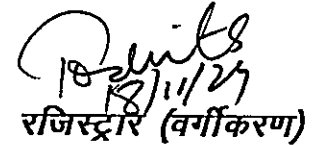 18/11/24
रजिस्ट्रार (वर्गीकरण)